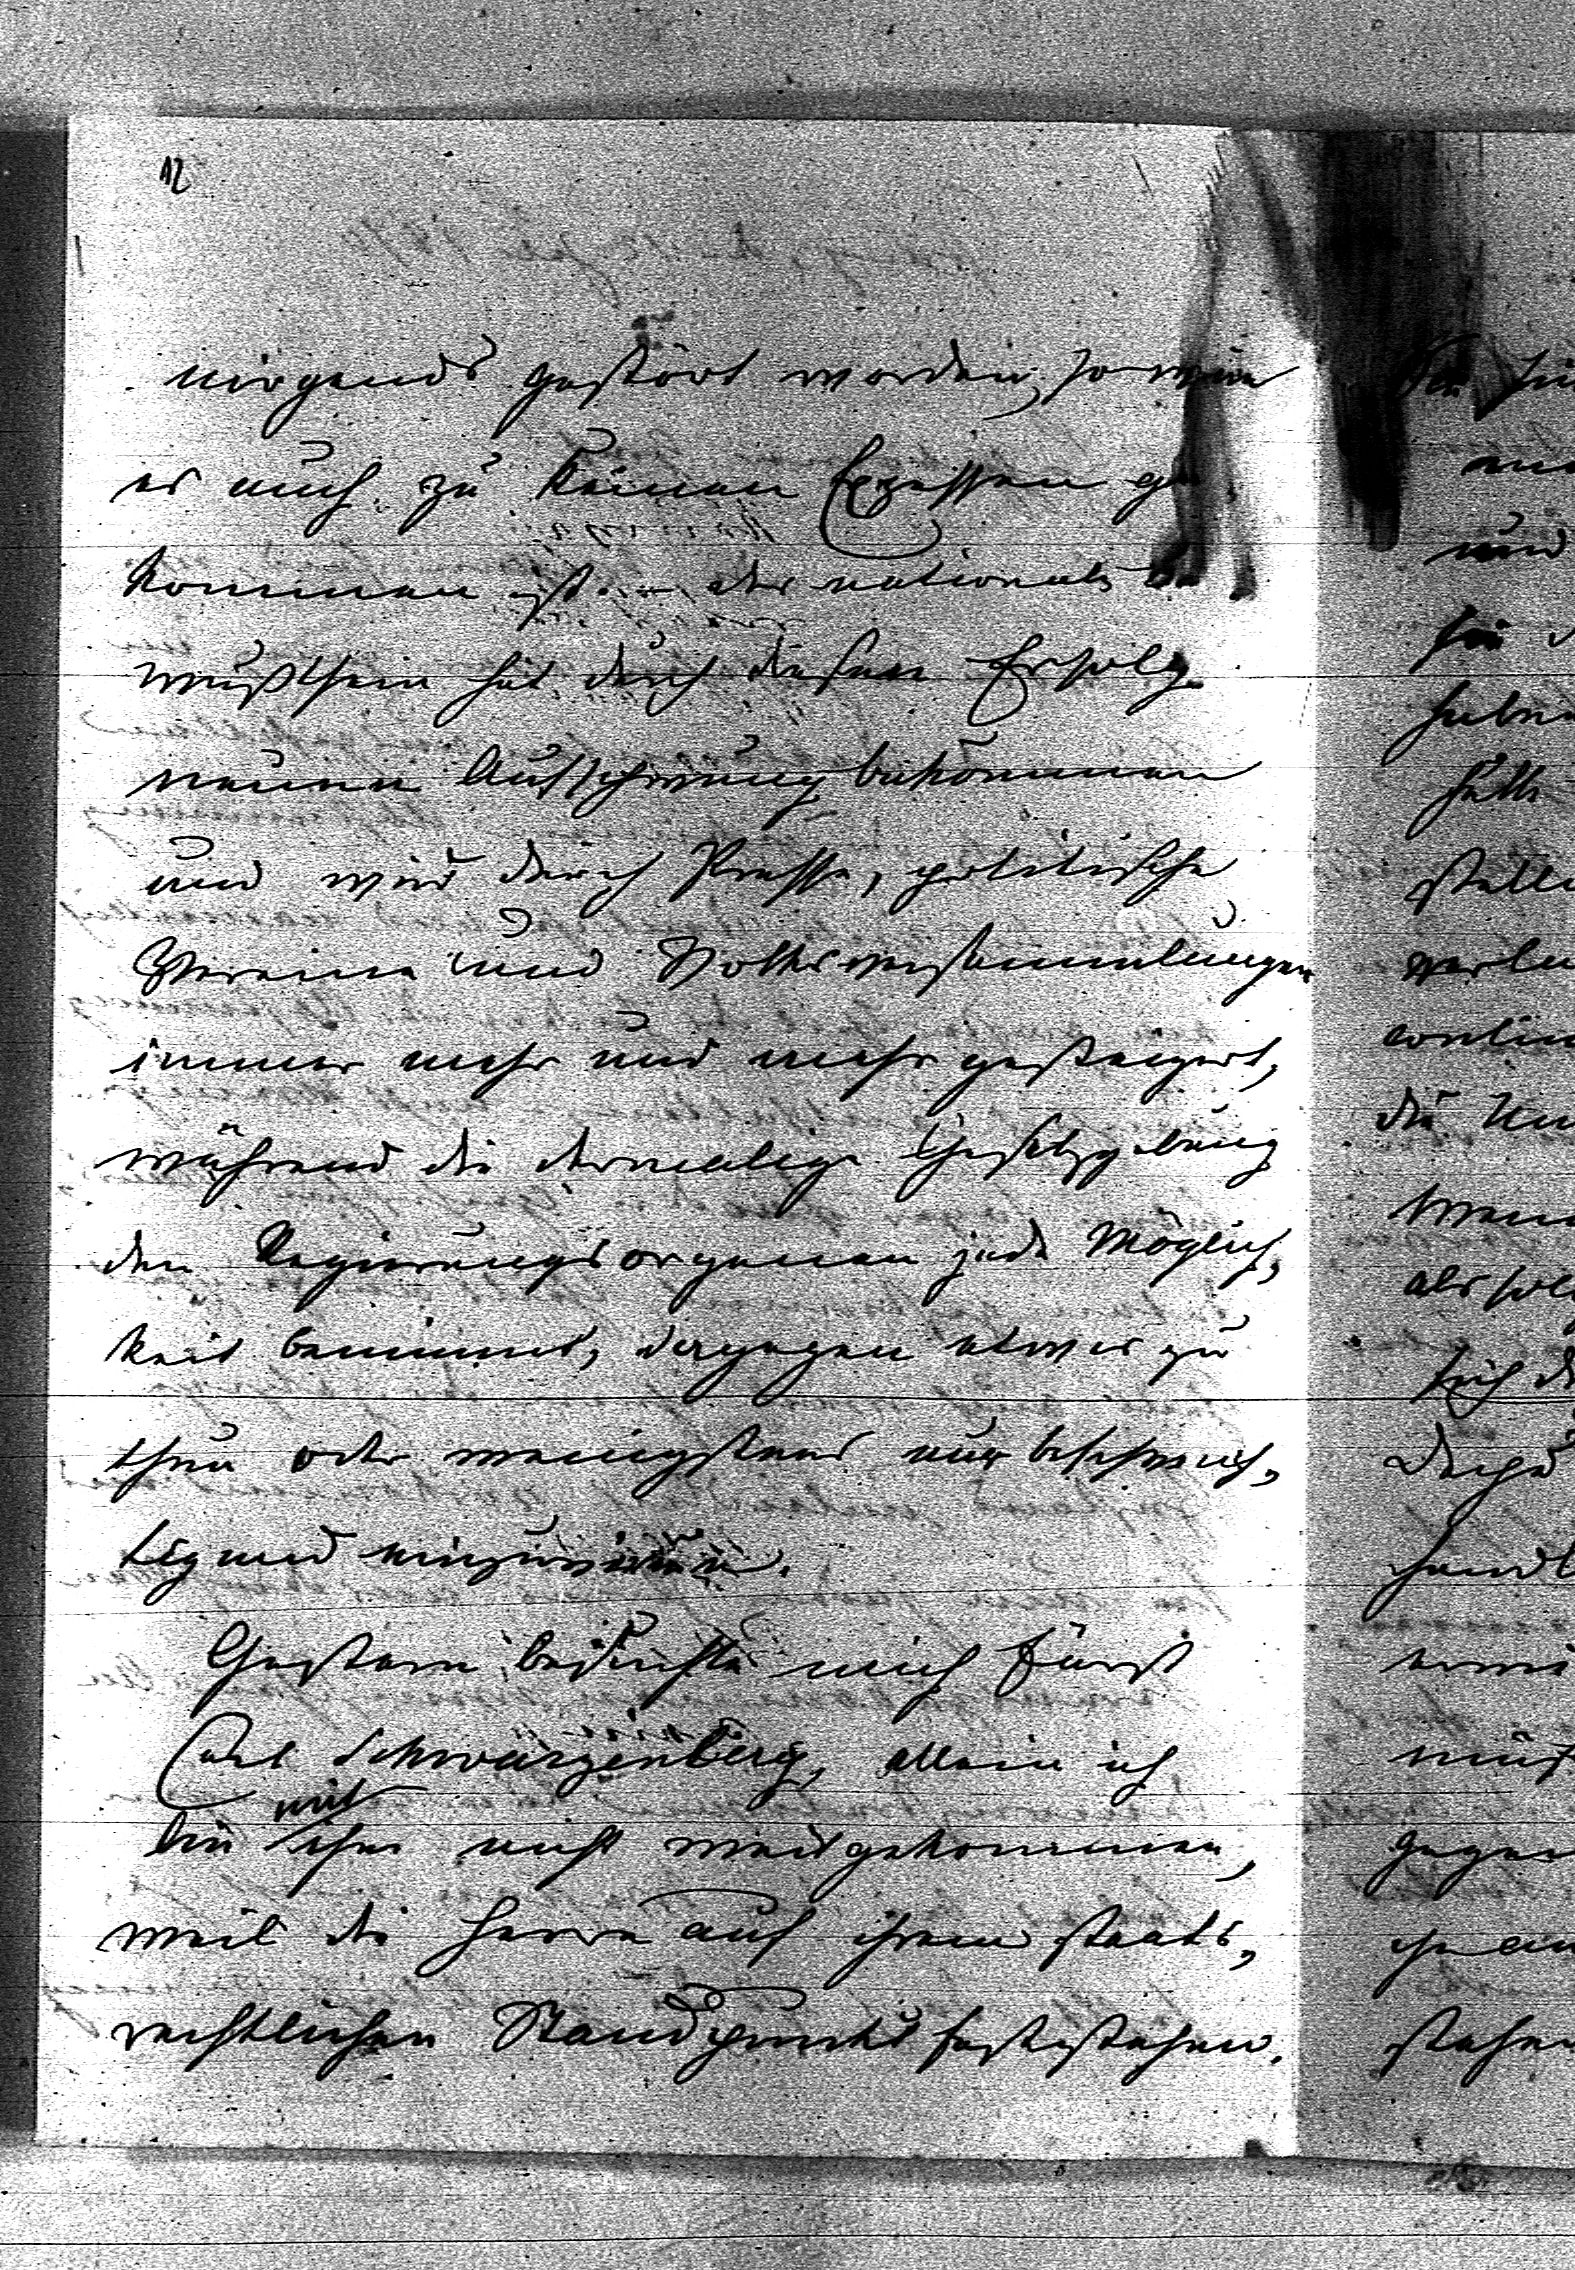 12
nirgends gestört worden, so wie
es auch zu keinen Exzessen ge
kommen ist. – das nationale Be
wußtsein hat durch diesen Erfolg
neuen Aufschwung bekommen
und wird durch Presse, politische
Vereine und Volksversammlungen
immer mehr und mehr gesteigert,
während die dermalige Gesetzgebung
den Regierungsorganen jede Möglich,
keit benimmt, dagegen etwas zu
thun oder wenigstens nur beschwich,
tigend einzuwirken.
Gestern besuchte mich Fürst
Carl Schwarzenberg, allein ich
bin mit ihm nicht weitgekommen,
weil die Herrn auf ihrem staats,
rechtlichen Standpunkt feststehen.
und